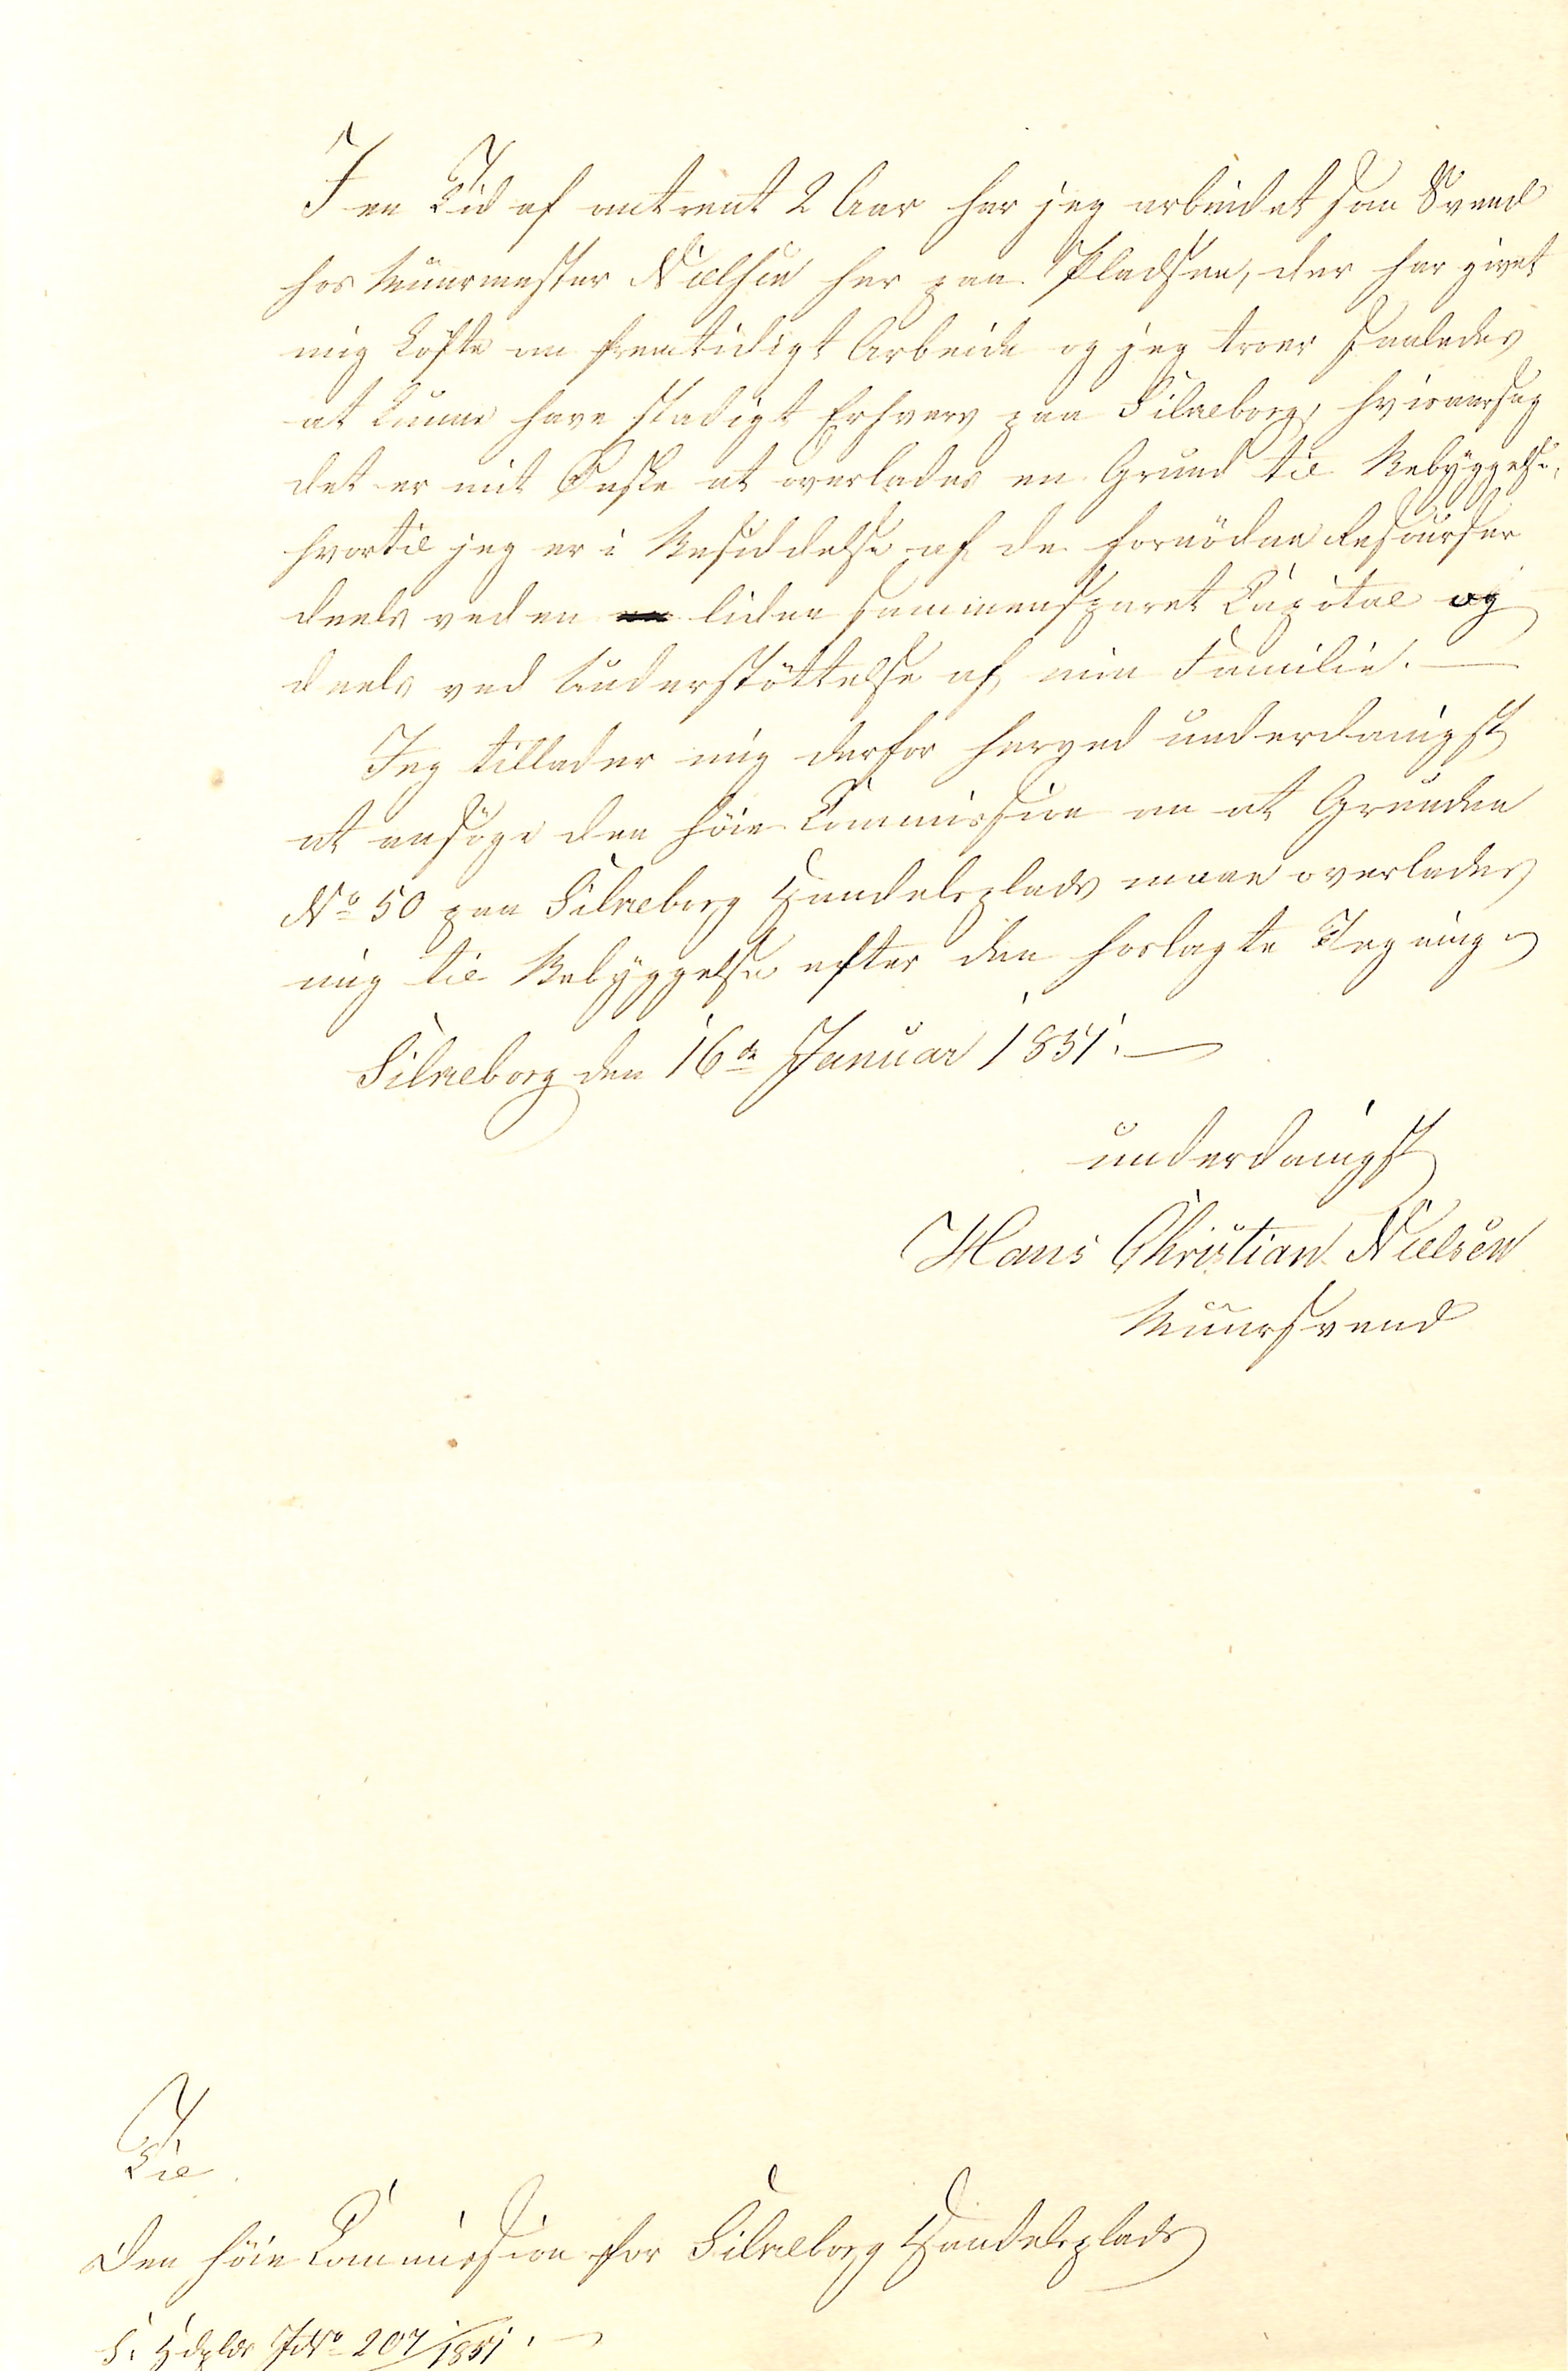 I en Tid af omtrent 2 Aar har jeg arbeidet som Svend
hos Muurmester Nielsen her paa Pladsen, der har givet
mig Löfte om fremtidigt Arbeide og jeg troer saaledes
at kunne have stadigt Erhverv paa Silkeborg, hvisaarsag
det er mit Ønske at overlades en Grund til Bebyggelse,
hvortil jeg er i Besiddelse af de fornödne Resourser
deels ved en liden sammensparet Capital og
deels ved Understöttelse af min Familie. —
Jeg tillader mig derfor herved underdanigst
at ansöge den höie Commission om at Grunden
No 50 paa Silkeborg Handelsplads maae overlades
mig til Bebyggelse efter den hoslagte Tegning.
Silkeborg den 16de Januar 1851. —
underdanigst
Hans Christian Nielsen
Muursvend
Til
Den höie Commission for Silkeborg Handelsplads
S. Hdplds JNo 207/1851. —